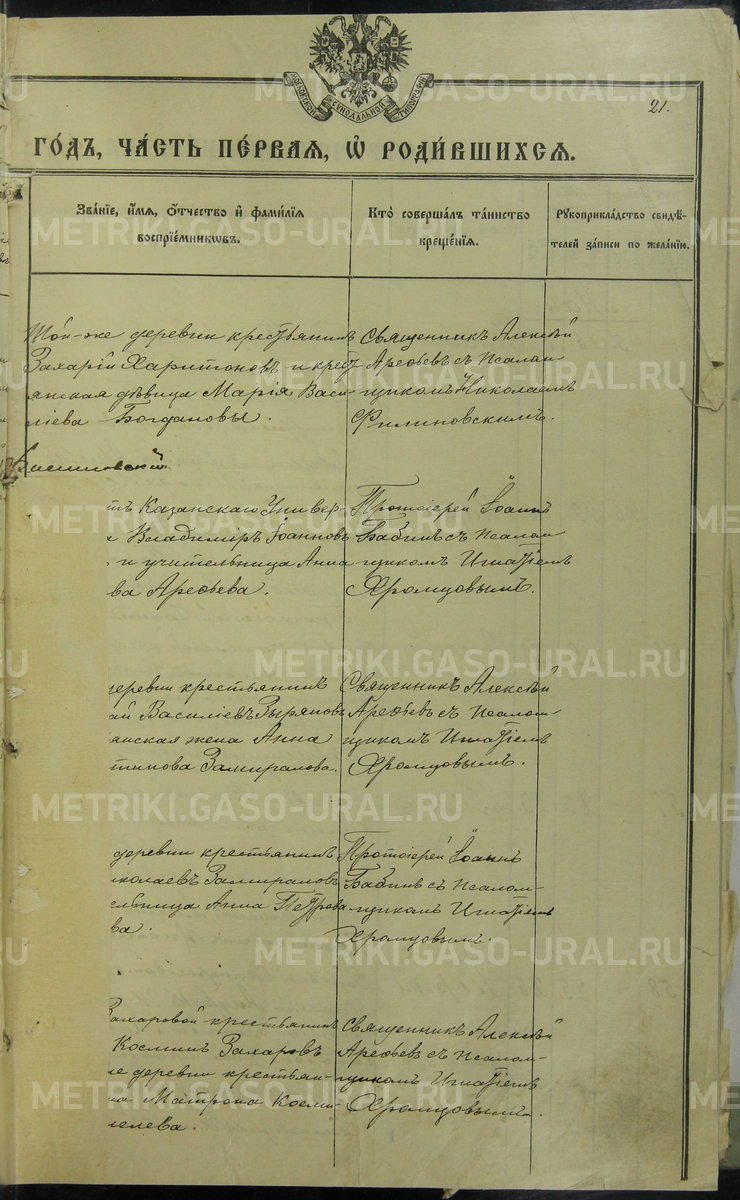 МОСКОВСКОЙ СѴНОДАЛЬНОЙ ТИПОГРАФІИ
21.
ГО́ДЪ, ЧА́СТЬ ПЕ́РВАЯ, Ѡ РОДИ́ВШИХСЯ.
Зва́нїе, и́мя, о́тчество и фами́лїя воспрїе́мниковъ.
Кто̀ соверша́лъ та́инство креще́нїя.
Рукоприкла́дство свидѣ́телей за́писи по жела́нїю.
Той-же деревни крестьянинъ
Захарій Харитоновъ и крест
янская дѣвица Марія Васи-
ліева Богдановы.
Священникъ Алексѣй
Арефьевъ съ псалом-
щикомъ Николаемъ
Филиновскимъ.
тъ Казанскаго Универ-
Владиміръ Іоанновъ
и учительница Анна
ва Арефьева.
Протоіерей Іоаннъ
Бабинъ съ псалом-
щикомъ Игнатіемъ
Хромцовымъ.
деревни крестьянинъ
ай Василіевъ Зыряновъ
янская жена Анна
тинова Замиралова.
Священникъ Алексѣй
Арефьевъ съ псалом-
щикомъ Игнатіемъ
Хромцовымъ.
деревни крестьянинъ
иколаевъ Замираловъ
ельница Анна Петрова
ва.
Протоіерей Іоаннъ
Бабинъ съ псалом-
щикомъ Игнатіемъ
Хромцовымъ.
Захаровой крестьянинъ
Косминъ Захаровъ
же деревни крестьян-
на Матрона Косми-
елева.
Священникъ Алексѣй
Арефьевъ съ псалом-
щикомъ Игнатіемъ
Хромцовымъ.
METRIKI.GASO-URAL.RU